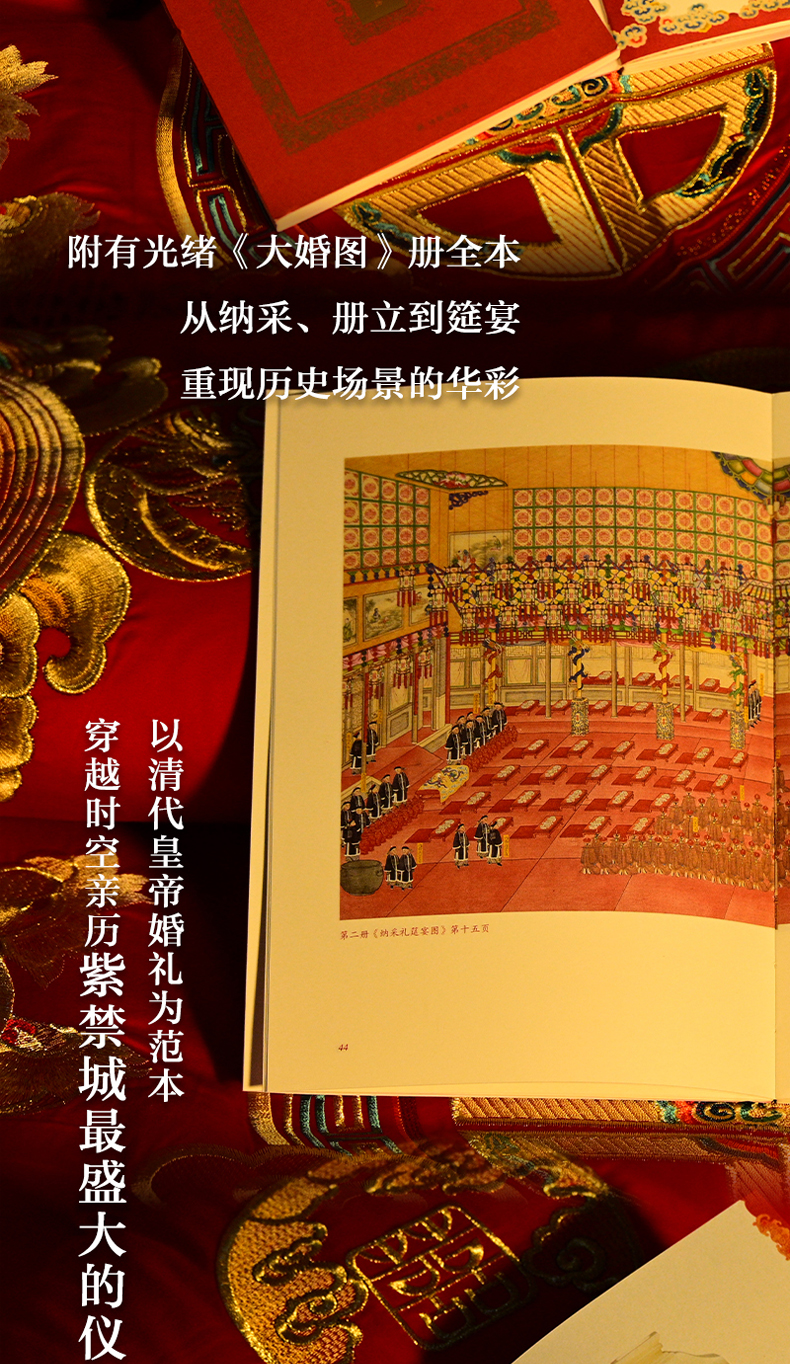 附有光绪《大婚图》册全本
从纳采、册立到筵宴
重现历史场景的华彩
以清代皇帝婚礼为范本
穿越时空亲历紫禁城最盛大的仪
第二册《纳采礼筵宴图》第十五页
44